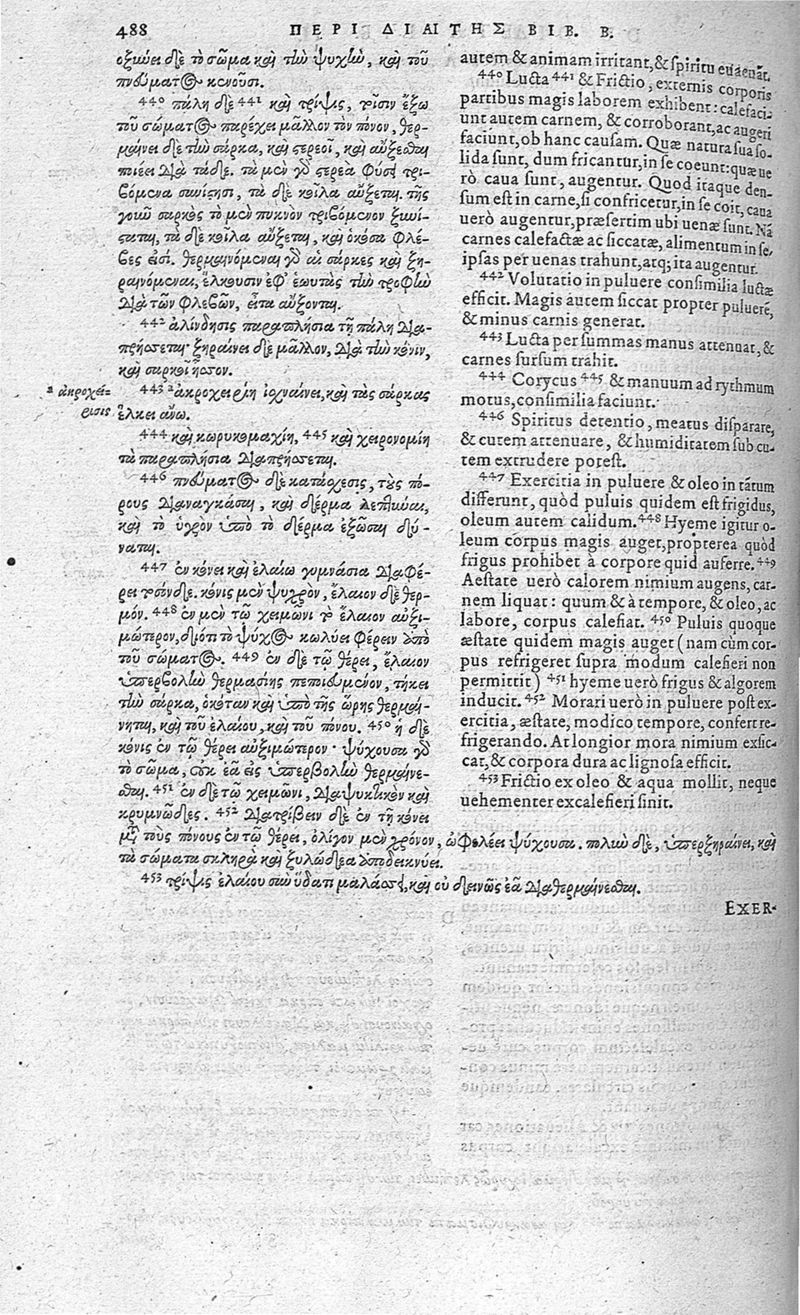 488 ΠΕΡΙ ΔΙΑΙΤΗΣ ΒΙΒ. Β.
ὀξύνει δὲ τὸ σῶμα καὶ τὴν ψυχὴν, καὶ τοῦ
πνεύματος κενοῦσι.
440 πάλη δὲ 441 καὶ τρίψις, τοῖσιν ἔξω
τοῦ σώματος παρέχει μᾶλλον τὸν πόνον, θερ-
μαίνει δὲ τὴν σάρκα, καὶ στερεοῖ, καὶ αὔξεσθαι
ποιέει διὰ τάδε. τὰ μὲν γὸ στερεὰ φύσει τρι-
βόμενα συνίστησι, τὰ δὲ κοῖλα αὔξεται. τῆς
γοιῶ σαρκὸς τὸ μὲν πυκνὸν τριβόμενον ξυνί-
σταται, τὰ δὲ κοῖλα αὔξεται, καὶ ὁκόσα φλέ-
βες εἰσί. θερμαινόμεναι γὸ αἱ σάρκες καὶ ξη-
ραινόμεναι, ἕλκουσιν ἐφ' ἑωυτὰς τὴν τροφὴν
διὰ τῶν φλεβῶν, εἶτα αὔξονται.
442 ἀλίνδησις παραπλήσια τῇ πάλῃ δια-
πρήσσεται· ξηραίνει δὲ μᾶλλον, διὰ τὴν κόνιν,
καὶ σαρκοῖ ἧσσον.
443 ² ἀκροχειρίη ἰσχναίνει, καὶ τὰς σάρκας
ἕλκει ἄνω.
² ἀκροχεί-
ρισις
444 καὶ κωρυκομαχίη, 445 καὶ χειρονομίη
τὰ παραπλήσια διαπρήσσεται.
446 πνεύματος δὲ κατάσχεσις, τοὺς πό-
ρους διαναγκάσαι, καὶ δέρμα λεπτῦναι,
καὶ τὸ ὑγρὸν ὑπὸ τὸ δέρμα ἐξῶσαι δύ-
ναται.
447 ἐν κόνει καὶ ἐλαίῳ γυμνάσια διαφέ-
ρει τοσόνδε. κόνις μὲν ψυχρὸν, ἔλαιον δὲ θερ-
μόν. 448 ἐν μὲν τῷ χειμῶνι τὸ ἔλαιον αὐξι-
μώτερον, διότι τὸ ψῦχος κωλύει φέρειν ἀπὸ
τοῦ σώματος. 449 ἐν δὲ τῷ θέρει, ἔλαιον
ὑπερβολὴν θερμασίης πεποιημένον, τήκει
τὴν σάρκα, ὁκόταν καὶ ὑπὸ τῆς ὥρης θερμαί-
νηται, καὶ τοῦ ἐλαίου, καὶ τοῦ πόνου. 450 ἡ δὲ
κόνις ἐν τῷ θέρει αὐξιμώτερον· ψύχουσα γὸ
τὸ σῶμα, οὐκ ἐᾷ εἰς ὑπερβολὴν θερμαίνε-
σθαι. 451 ἐν δὲ τῷ χειμῶνι, διαψυκτικὸν καὶ
κρυμνῶδες. 452 διατρίβειν δὲ ἐν τῇ κόνει
μετὰ τοὺς πόνους ἐν τῷ θέρει, ὀλίγον μὲν χρόνον, ὠφελέει ψύχουσα. πολιὼ δὲ, ὑπερξηραίνει, καὶ
τὰ σώματα σκληρὰ καὶ ξυλώδεα ἀποδεικνύει.
453 τρίψις ἐλαίου σὺν ὕδατι μαλάσσει, καὶ οὐ δεινῶς ἐᾷ διαθερμαίνεσθαι.
autem & animam irritant, & spiritu euacuāt.
440 Lucta 441 & Frictio, externis corporis
partibus magis laborem exhibent: calefaci-
unt autem carnem, & corroborant, ac augeri
faciunt, ob hanc causam. Quæ natura sua so-
lida sunt, dum fricantur, in se coeunt: quæ ue
rò caua sunt, augentur. Quod itaque den-
sum est in carne, si confricetur, in se coit, caua
uerò augentur, præsertim ubi uenæ sunt. Nā
carnes calefactæ ac siccatæ, alimentum in se-
ipsas per uenas trahunt, atq; ita augentur.
442 Volutatio in puluere consimilia luctæ
efficit. Magis autem siccat propter puluerē,
& minus carnis generat.
443 Lucta per summas manus attenuat, &
carnes sursum trahit.
444 Corycus 445 & manuum ad rythmum
motus, consimilia faciunt.
446 Spiritus detentio, meatus disparare,
& cutem attenuare, & humiditatem sub cu-
tem extrudere potest.
447 Exercitia in puluere & oleo in tātum
differunt, quòd puluis quidem est frigidus,
oleum autem calidum. 448 Hyeme igitur o-
leum corpus magis auget, propterea quòd
frigus prohibet à corpore quid auferre. 449
Aestate uerò calorem nimium augens, car-
nem liquat: quum & à tempore, & oleo, ac
labore, corpus calefiat. 450 Puluis quoque
æstate quidem magis auget (nam cùm cor-
pus refrigeret supra modum calefieri non
permittit) 451 hyeme uerò frigus & algorem
inducit. 452 Morari uerò in puluere post ex-
ercitia, æstate, modico tempore, confert re-
frigerando. At longior mora nimium exsic-
cat, & corpora dura ac lignosa efficit.
453 Frictio ex oleo & aqua mollit, neque
uehementer excalefieri sinit.
EXER-